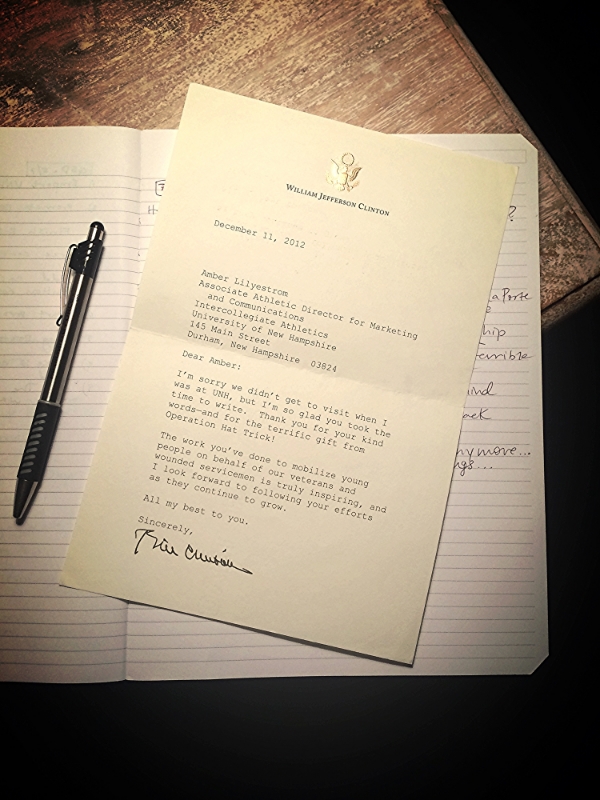 WILLIAM JEFFERSON CLINTON
December 11, 2012
Amber Lilyestrom
Associate Athletic Director for Marketing
and Communications
Intercollegiate Athletics
University of New Hampshire
145 Main Street
Durham, New Hampshire 03824
Dear Amber:
I'm sorry we didn't get to visit when I
was at UNH, but I'm so glad you took the
time to write. Thank you for your kind
words—and for the terrific gift from
Operation Hat Trick!
The work you've done to mobilize young
people on behalf of our veterans and
wounded servicemen is truly inspiring, and
I look forward to following your efforts
as they continue to grow.
All my best to you.
Sincerely,
Bill Clinton
?
LaPorte
hip
terrible
ind
ack
ny more...
gs...